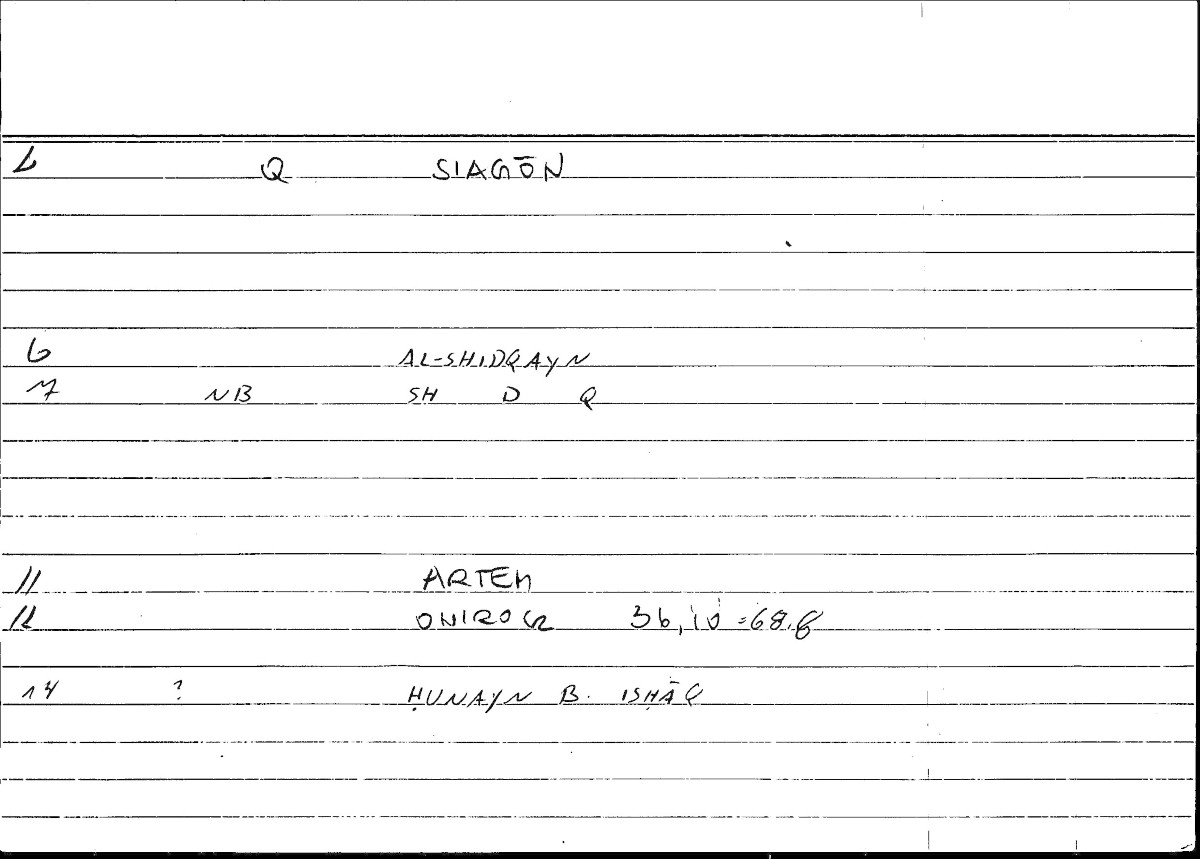 Q SIAGŌN
6 AL-SHIDQAYN
7 NB SH D Q
11 ARTEM
12 ONIROCR 36,10 = 68.8
14 ? ḤUNAYN B. ISḤĀQ